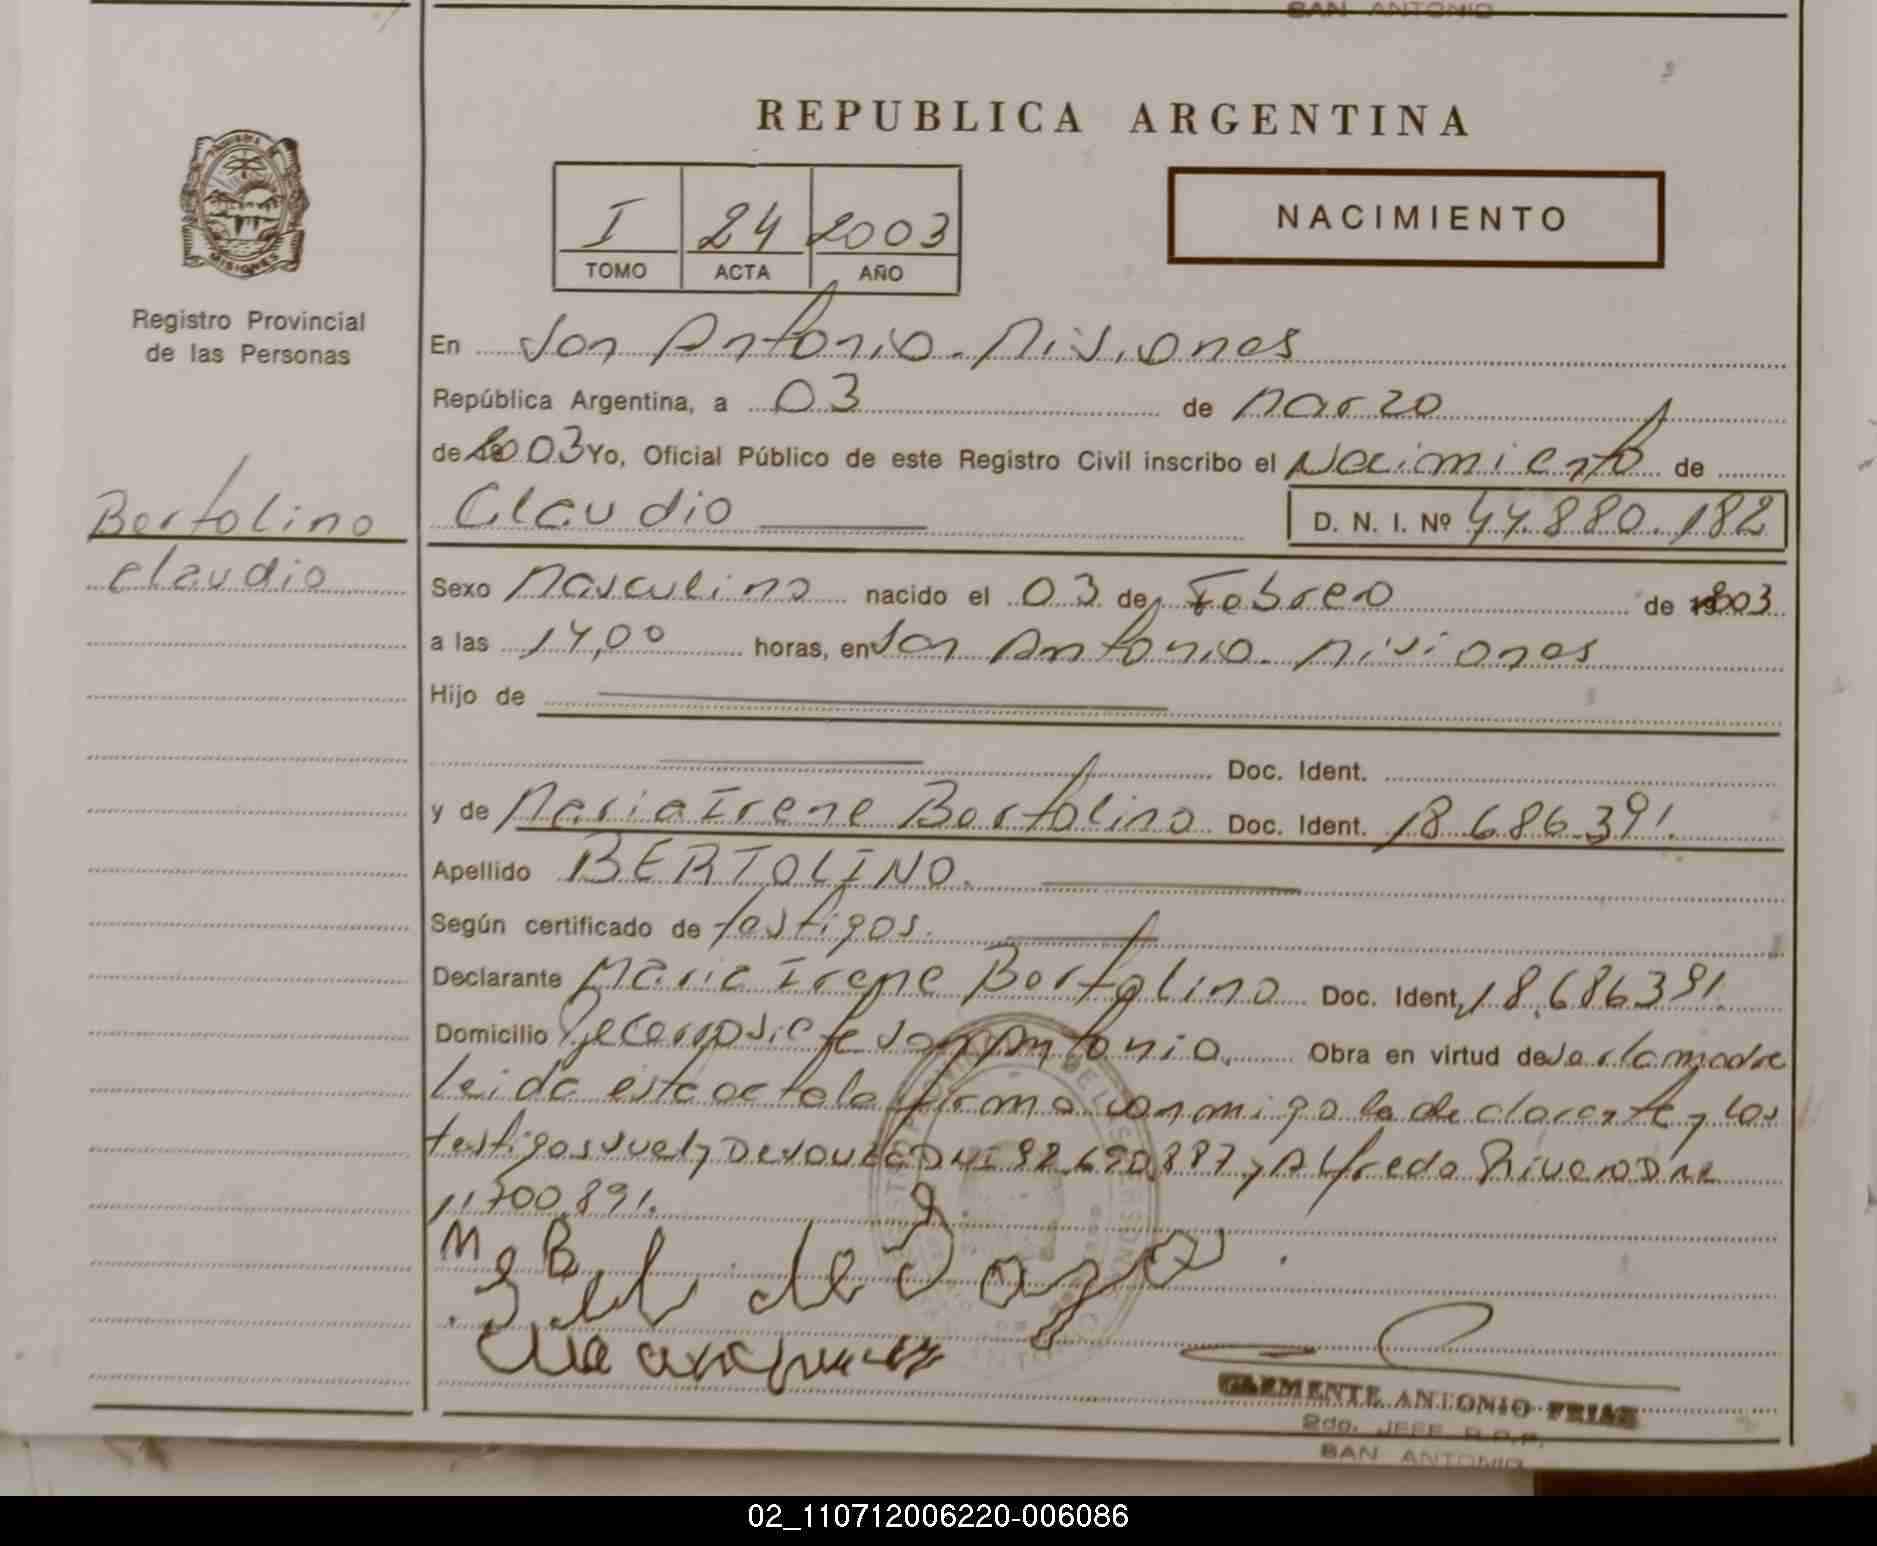 SAN ANTONIO
REPUBLICA ARGENTINA
MISIONES
I 24 2003
TOMO ACTA AÑO
NACIMIENTO
Registro Provincial
de las Personas
En San Antonio. Misiones
República Argentina, a 03 de Marzo
de 2003 Yo, Oficial Público de este Registro Civil inscribo el Nacimiento de
Bertolino
Claudio
Claudio
D. N. I. Nº 44.880.182
Sexo Masculino nacido el 03 de Febrero de 2003
a las 14,00 horas, en San Antonio. Misiones
Hijo de
Doc. Ident.
y de Maria Irene Bertolino Doc. Ident. 18.686.391.
Apellido BERTOLINO.
Según certificado de testigos.
Declarante Maria Irene Bertolino Doc. Ident. 18.686.391.
Domicilio San Antonio. Obra en virtud de ser la madre
leida esta acta la firma conmigo la declarante y los
testigos DNI 92.690.887 y Alfredo Rivero DNI
11.700.891.
M B
CLEMENTE ANTONIO FRIAS
2do. JEFE R.P.P.
SAN ANTONIO
02_110712006220-006086